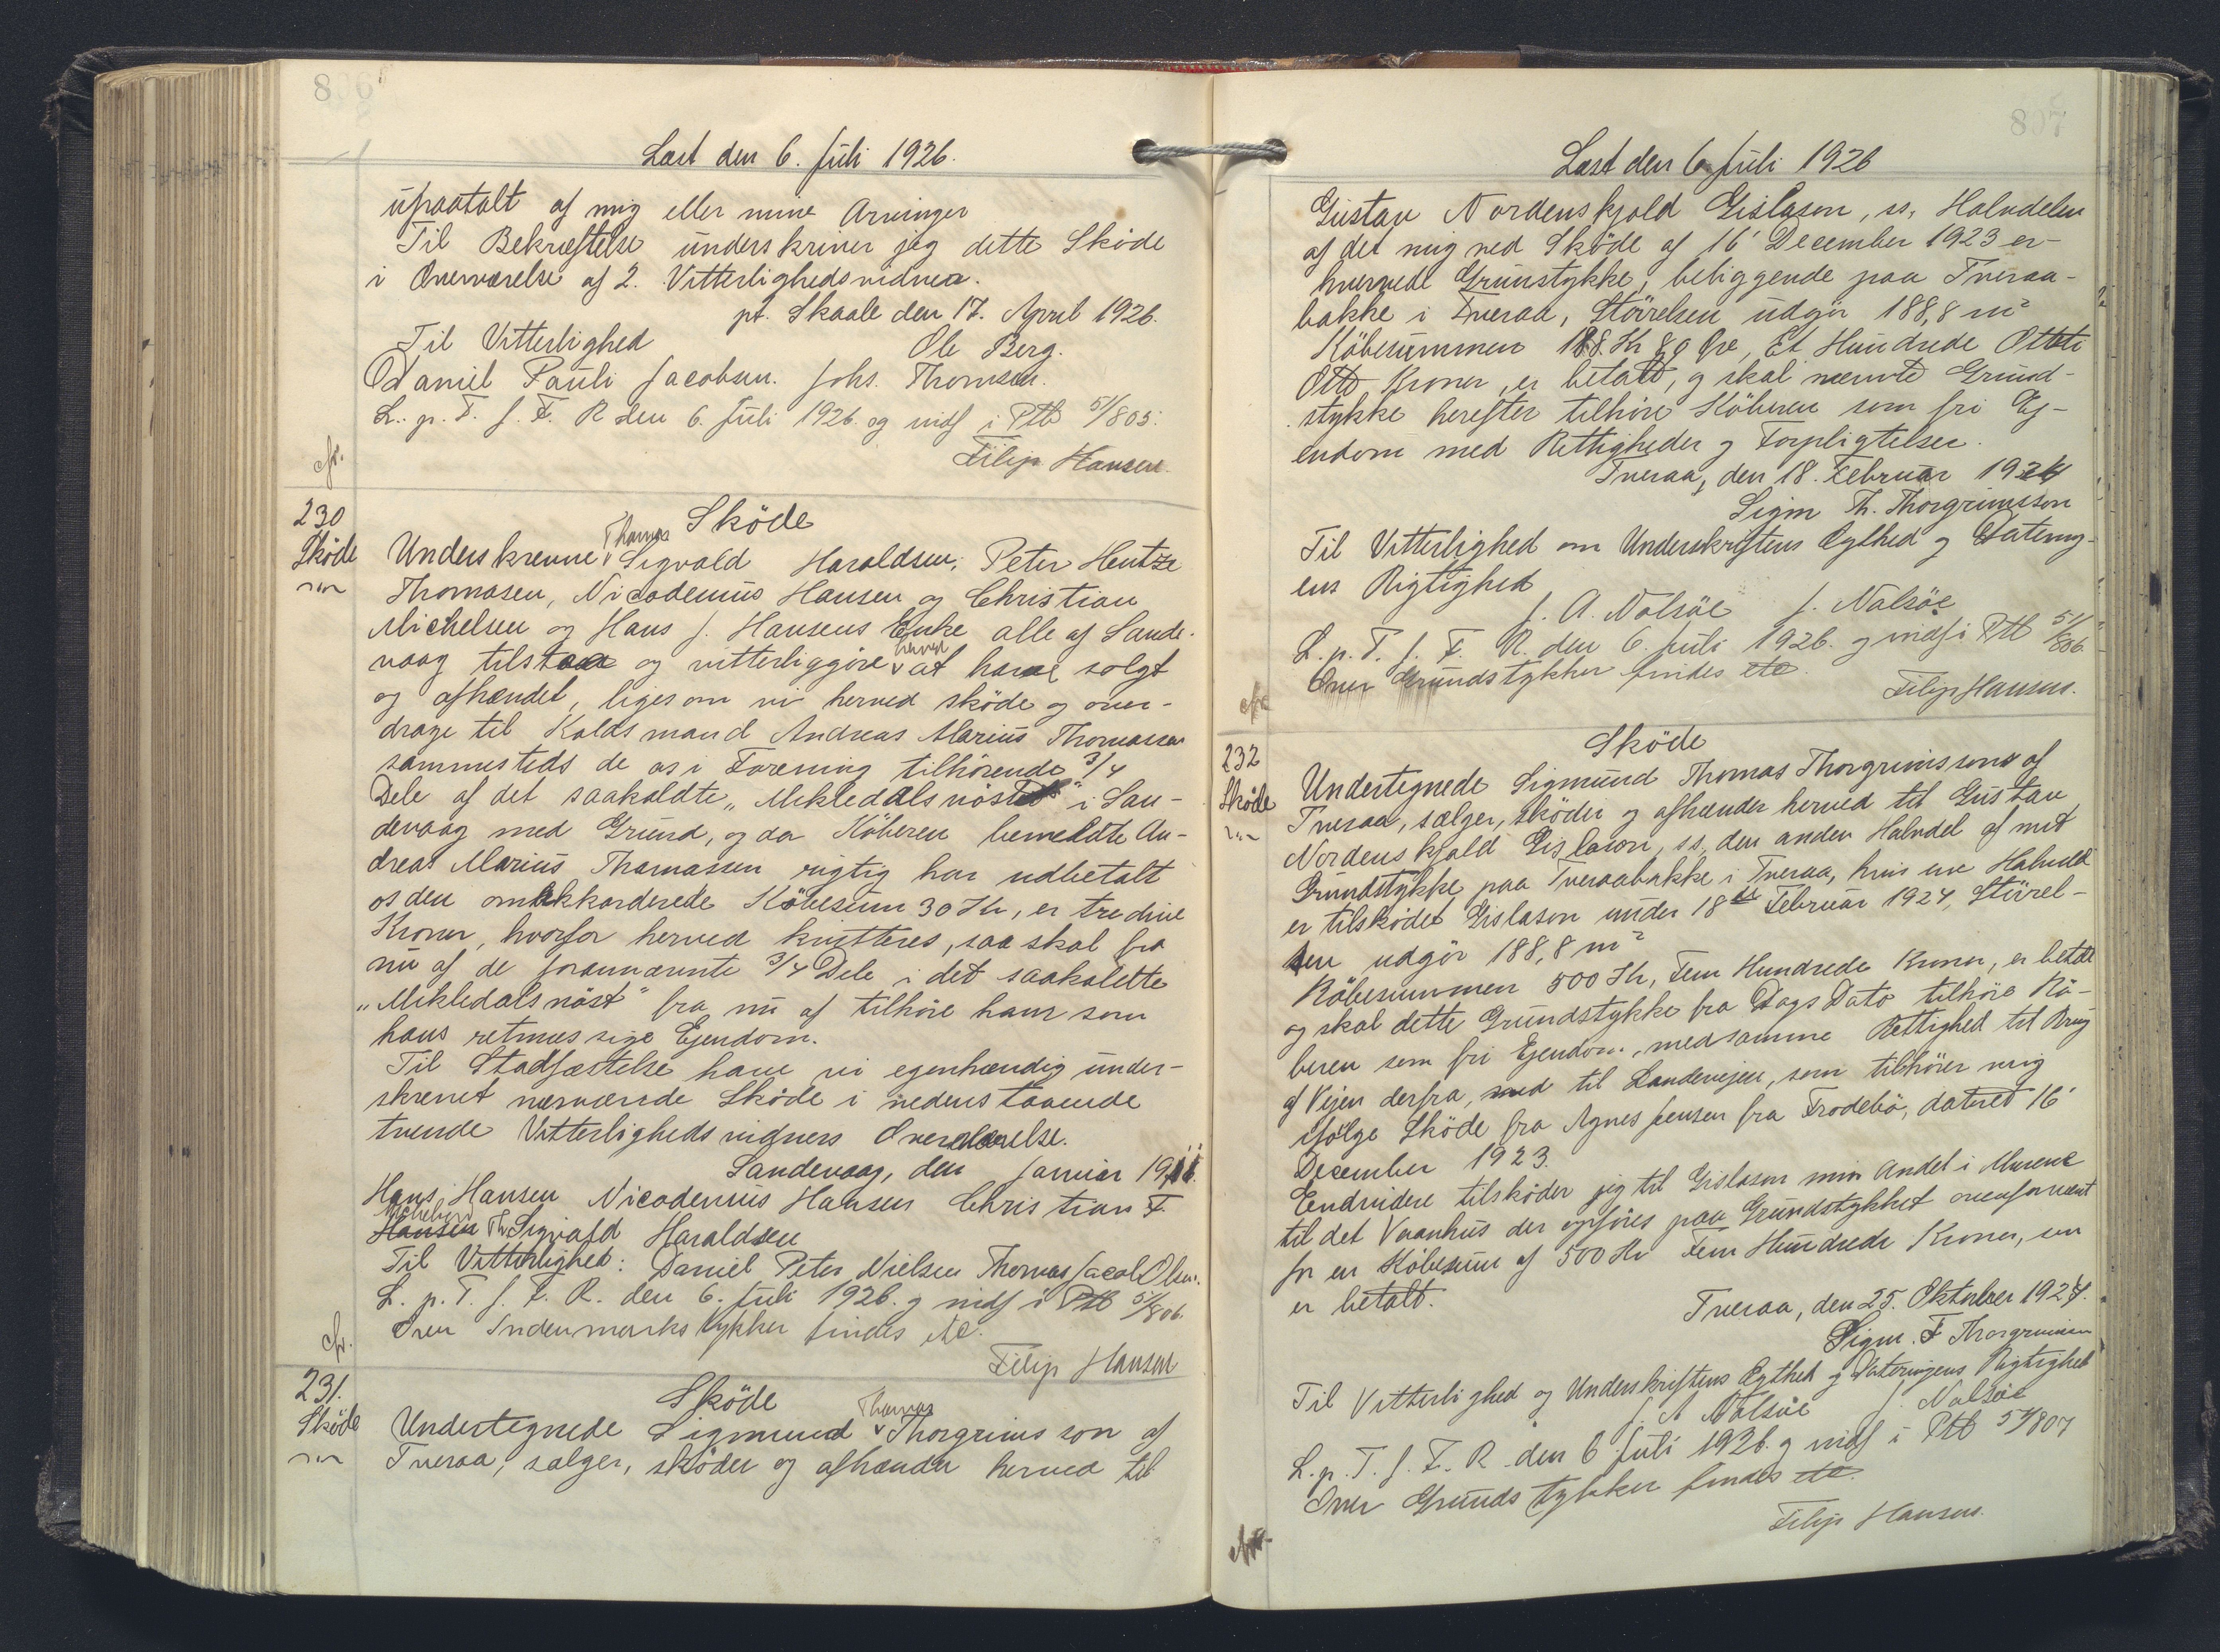 806
Læst den 6. Juli 1926.
upaatalt af mig eller mine Arvinger
Til Bekræftelse underskriver jeg dette Sköde
i Overværelse af 2. Vitterlighedsvidner.
pt. Skaale den 17. April 1926.
Til Vitterlighed Ole Berg.
Daniel Pauli Jacobsen. Johs. Thomsen.
L. p. T. f. F. R den 6. Juli 1926 og indf i Ptb 51/805.
cfr. Filip Hansen.
230 Sköde
Sköde Underskrevne Thomas Sigvald Haraldsen, Peter Hentze
Thomasen, Nicodemus Hansen og Christian
Michelsen og Hans J. Hansens Enke alle af Sande-
vaag tilstaa og vitterliggöre herved at have solgt
og afhændet, ligesom vi herved sköde og over-
drage til Koldsmand Andreas Marius Thomassen
sammesteds de os i Forening tilhörende 3/4
Dele af det saakaldte „Mikledalsnöst" i San-
devaag med Grund, og da Köberen bemeldte An-
dreas Marius Thomassen rigtig har udbetalt
os den omakkorderede Köbesum 30 Kr, er tredive
Kroner, hvorfor herved kvitteres, saa skal fra
nu af de forannævnte 3/4 Dele i det saakaldte
„Mikledalsnöst" fra nu af tilhöre ham som
hans retmæssige Ejendom.
Til Stadfæstelse have vi egenhændig under-
skrevet nærværende Sköde i nedenstaaende
tvende Vitterlighedsvidners Overværelse.
Sandevaag, den Januar 19
Hans Hansen Nicodemus Hansen Christian F.
Hansen Michelsen Th Sigvald Haraldsen
Til Vitterlighed: Daniel Peter Nielsen Thomas Jacob Olsen.
L. p. T. f. F. R. den 6. Juli 1926. og indf i Ptb 51/806.
cfr. Over Indenmarksstykker findes etc.
Filip Hansen
231. Sköde
Sköde Undertegnede Sigmund Thomas Thorgrimsson af
Tveraa, sælger, sköder og afhænder herved til
807
Læst den 6. Juli 1926
Gustav Nordenskjold Gislason, ss, Halvdelen
af det mig ved Sköde af 16' December 1923 er-
hvervede Grunstykke, beliggende paa Tveraa-
bakke i Tveraa, Störrelsen udgör 188,8 m²
Köbesummen 188 Kr 80 Øre, Et Hundrede Otteti
Otte Kroner, er betalt, og skal nævnte Grund-
stykke herefter tilhöre Köberen som fri Ej-
endom med Rettigheder og Forpligtelser.
Tveraa, den 18. Februar 1924
Sigm Th. Thorgrimsson
Til Vitterlighed om Underskriftens Ægthed og Datering-
ens Rigtighed
J. A. Nolsöe J. Nolsöe
L. p. T. f. F. R. den 6. Juli 1926. og indf i Ptb 51/806
Over Grundstykker findes etc.
cfr Filip Hansen.
232 Sköde
Sköde Undertegnede Sigmund Thomas Thorgrimsson af
Tveraa, sælger, sköder og afhænder herved til Gustav
Nordenskjold Gislason, ss, den anden Halvdel af mit
Grundstykke paa Tveraabakke i Tveraa, hvis ene Halvdel
er tilsködet Gislason under 18de Februar 1924, Störrel-
sen udgör 188,8 m²
Köbesummen 500 Kr, Fem Hundrede Kroner, er betalt
og skal dette Grundstykke fra Dags Dato tilhöre Kö-
beren som fri Ejendom, med samme Rettighed til Brug
af Vejen derfra, ned til Landevejen, som tilhörer mig
ifölge Sköde fra Agnes Jensen fra Frodebö, dateret 16'
December 1923.
Endvidere tilsköder jeg til Gislason min Andel i Murene
til det Vaanhus der opföres paa Grundstykket ovenfornævnt
for en Köbesum af 500 Kr Fem Hundrede Kroner, en
er betalt.
Tveraa, den 25. Oktober 1924.
Sigm. T Thorgrimsson
Til Vitterlighed og Underskriftens Ægthed og Dateringens Rigtighed
J. A Nolsöe J. Nolsöe
L. p. T. f. F. R den 6 Juli 1926. og indf i Ptb 51/807
Over Grundstykker findes etc.
Filip Hansen.
cfr.